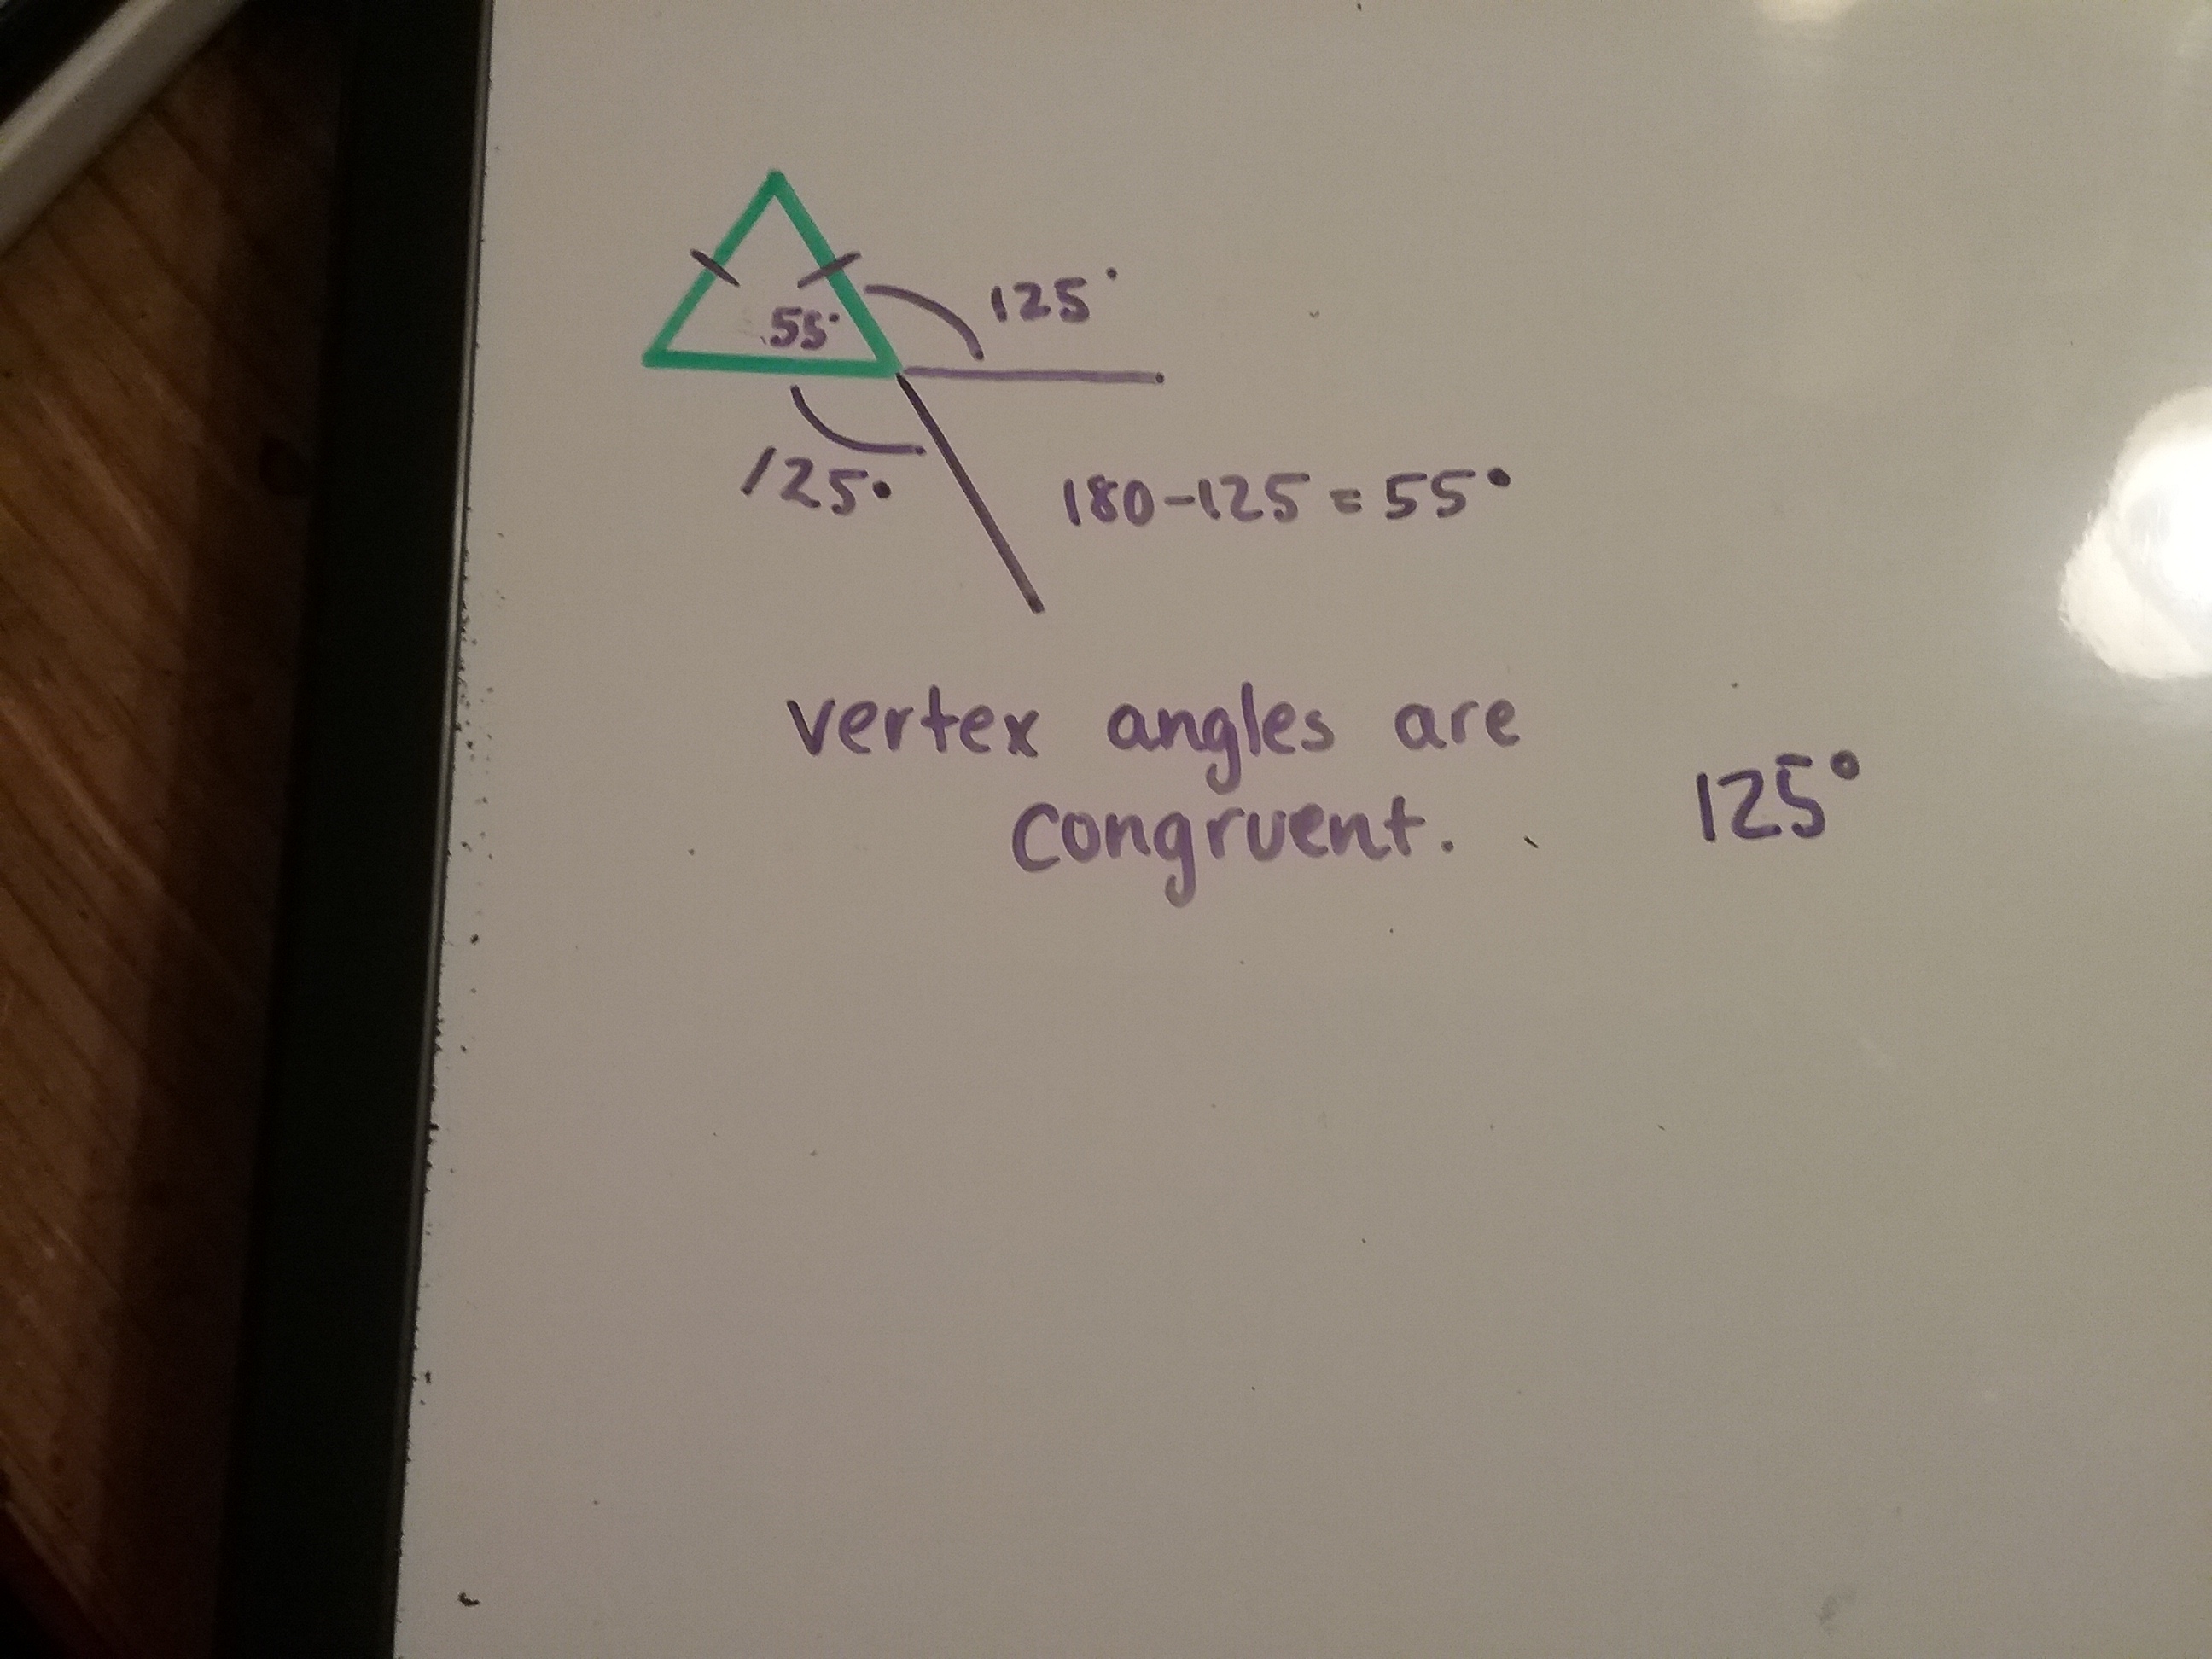 125°
55°
125°
180-125=55°
vertex angles are
congruent.
125°